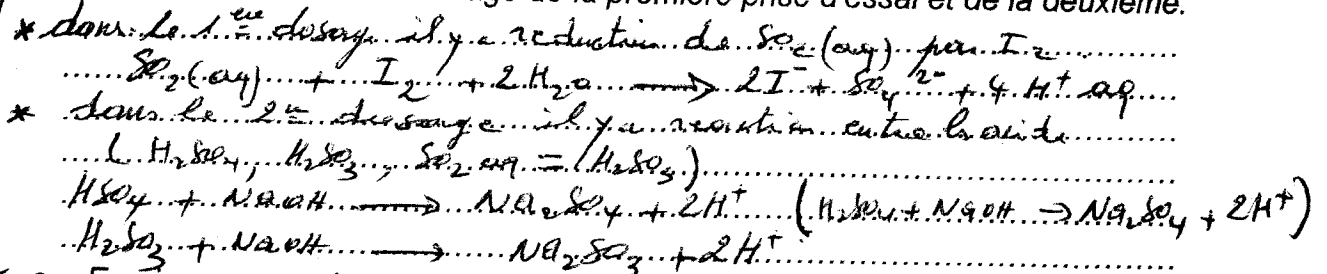 de la première prise d'essai et de la deuxième.
* dans le 1ere dosage il y a reduction de SO2 (aq) par I2
SO2 (aq) + I2 + 2H2O → 2I- + SO4 2- + 4H+ aq
* dans le 2e dosage il y a reaction entre les acide
(H2SO4, H2SO3, SO2 aq = H2SO3)
HSO4 + NaOH → Na2SO4 + 2H+ (H2SO4 + NaOH → Na2SO4 + 2H+)
H2SO3 + NaOH → Na2SO3 + 2H+